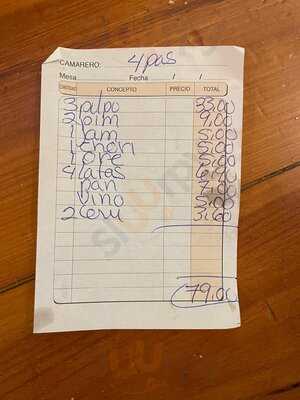 CAMARERO: 4 pas
Mesa Fecha / /
CANTIDAD CONCEPTO PRECIO TOTAL
3 pulpo 33,00
2 pim 9,00
1 Jam 5,00
1 chori 5,00
1 ore 5,00
4 latas
pan
vino 5,00
2 Ceru 3,60
79,00